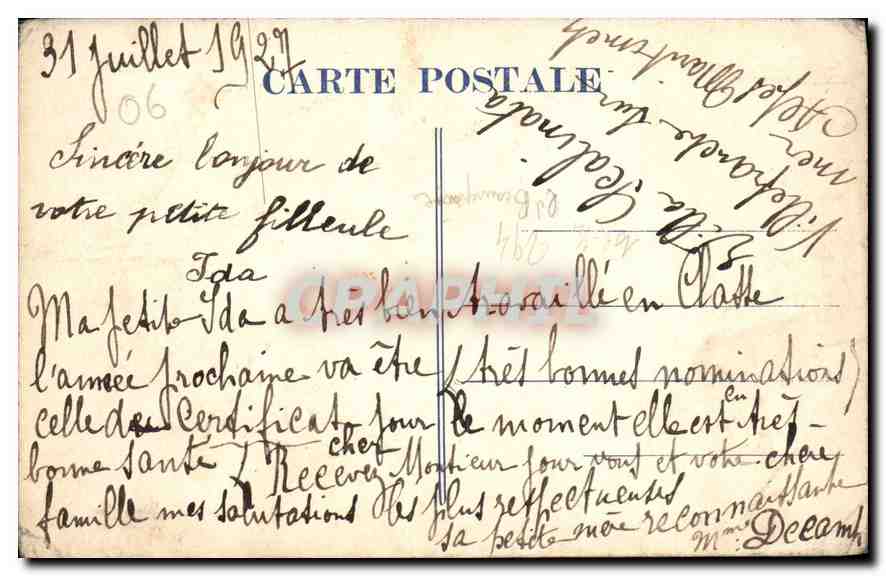 31 juillet 1927
CARTE POSTALE
06
Sincére bonjour de
votre petite filleule
Ida
Ma petite Ida a très bien travaillé en Classe
l'année prochaine va être (très bonnes nominations)
celle de Certificat, pour le moment elle est en très
bonne santé / Recevez cher Monsieur pour vous et votre chère
famille mes salutations les plus respectueuses
sa petite mère reconnaissante
Mme Decamp
Villa
Villefranche sur
mer
Alpes Maritimes
294
CPAPHIL